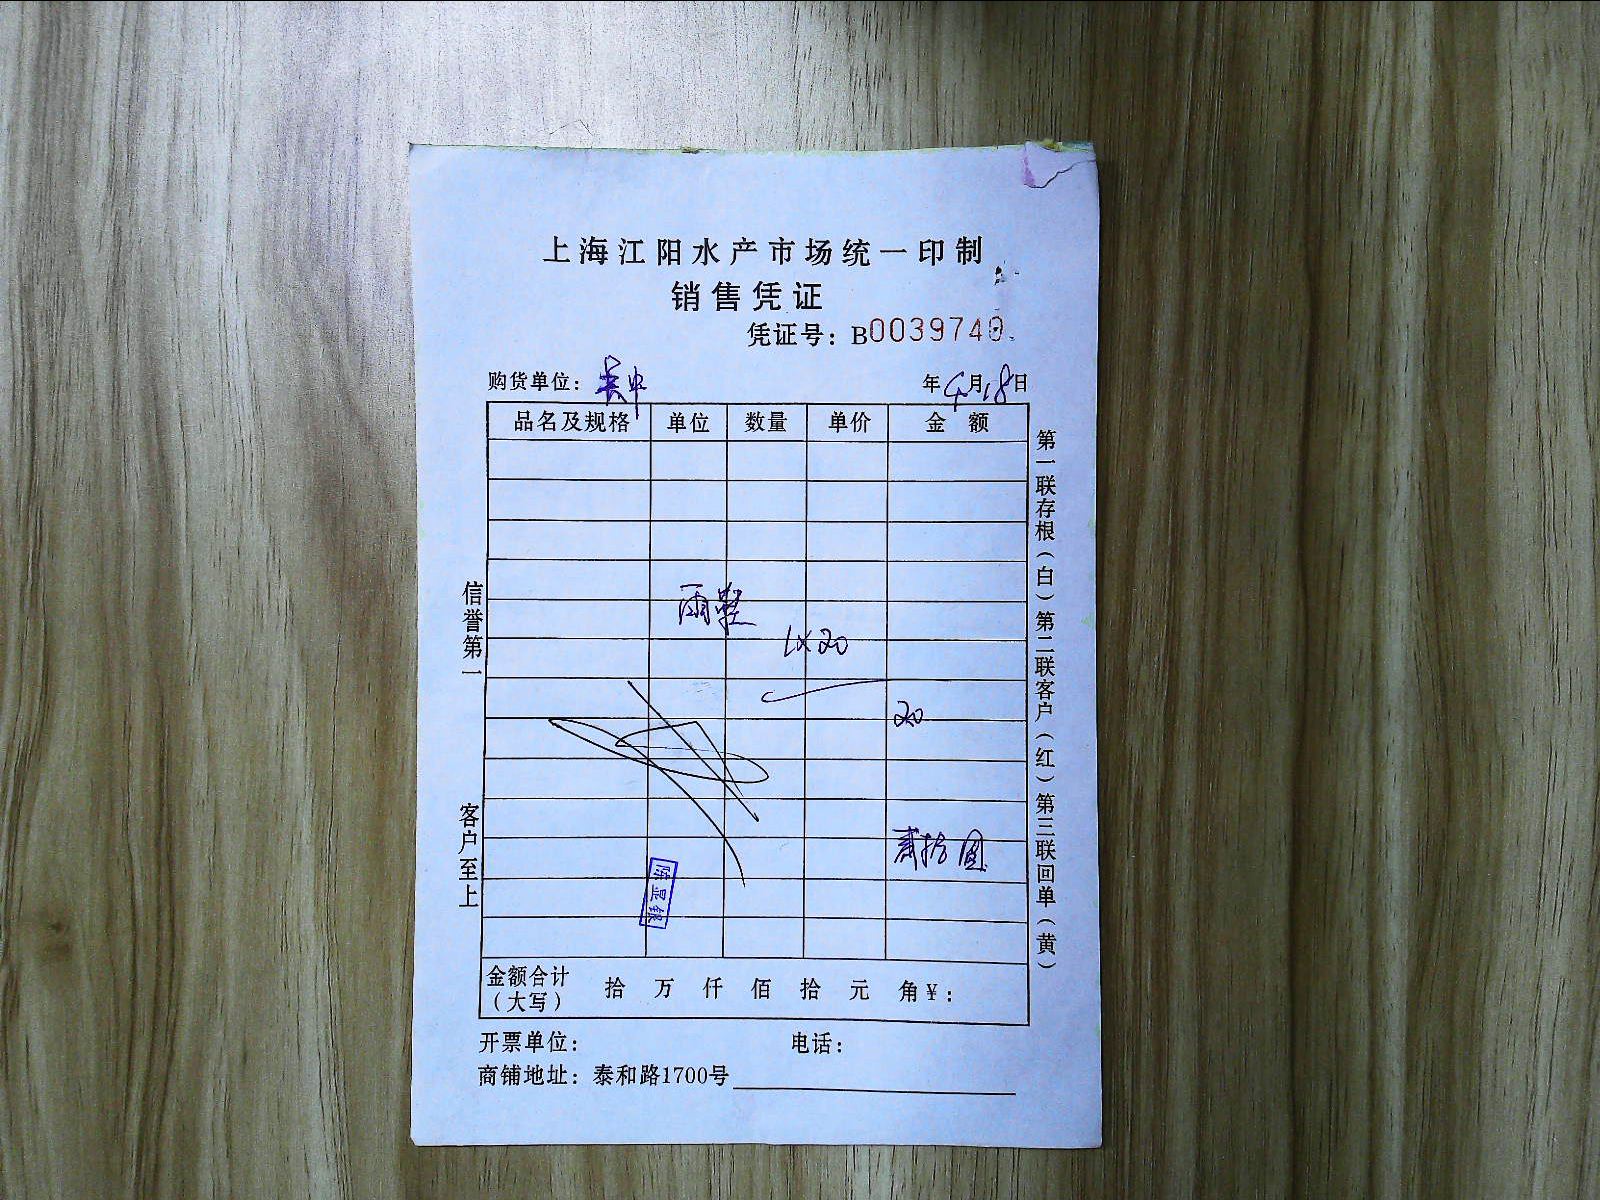 上海江阳水产市场统一印制
销售凭证
凭证号：B0039740
购货单位： 年4月18日
品名及规格 单位 数量 单价 金额
雨鞋
1×20
20
贰拾圆
陈显银
金额合计（大写） 拾 万 仟 佰 拾 元 角¥：
开票单位： 电话：
商铺地址：泰和路1700号
信誉第一
客户至上
第一联存根（白）第二联客户（红）第三联回单（黄）